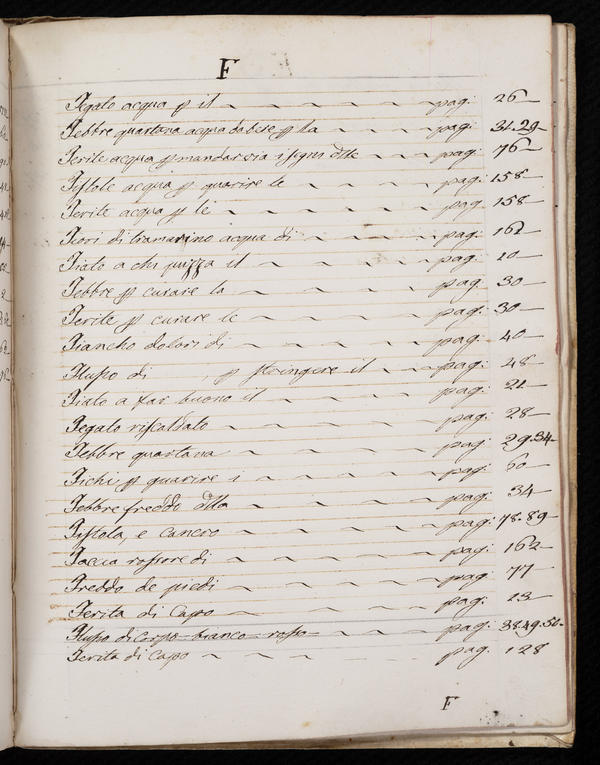 F
Fegato acqua p il pag. 26
Febbre quartana acqua da bere p la pag. 31.29
Ferite acqua p mandar via i segni delle pag. 76
Fistole acqua p guarire le pag. 158
Ferite acqua p le pag. 158
Fiori di tramarino acqua di pag. 162
Fiato a chi puzza il pag. 10
Febbre p curare la pag. 30
Ferite p curare le pag. 30
Fiancho dolori di pag. 40
Flusso di p stringere il pag. 48
Fiato a far buono il pag. 21
Fegato riscaldato pag. 28
Febbre quartana pag. 29.34
Fichi p guarire i pag. 60
Febbre freddo della pag. 34
Fistola e cancro pag. 78.89
Faccia rossore di pag. 162
Freddo de piedi pag. 77
Ferita di Capo pag. 13
Flusso di corpo bianco rosso pag. 38.49.50
Ferita di capo pag. 128
F